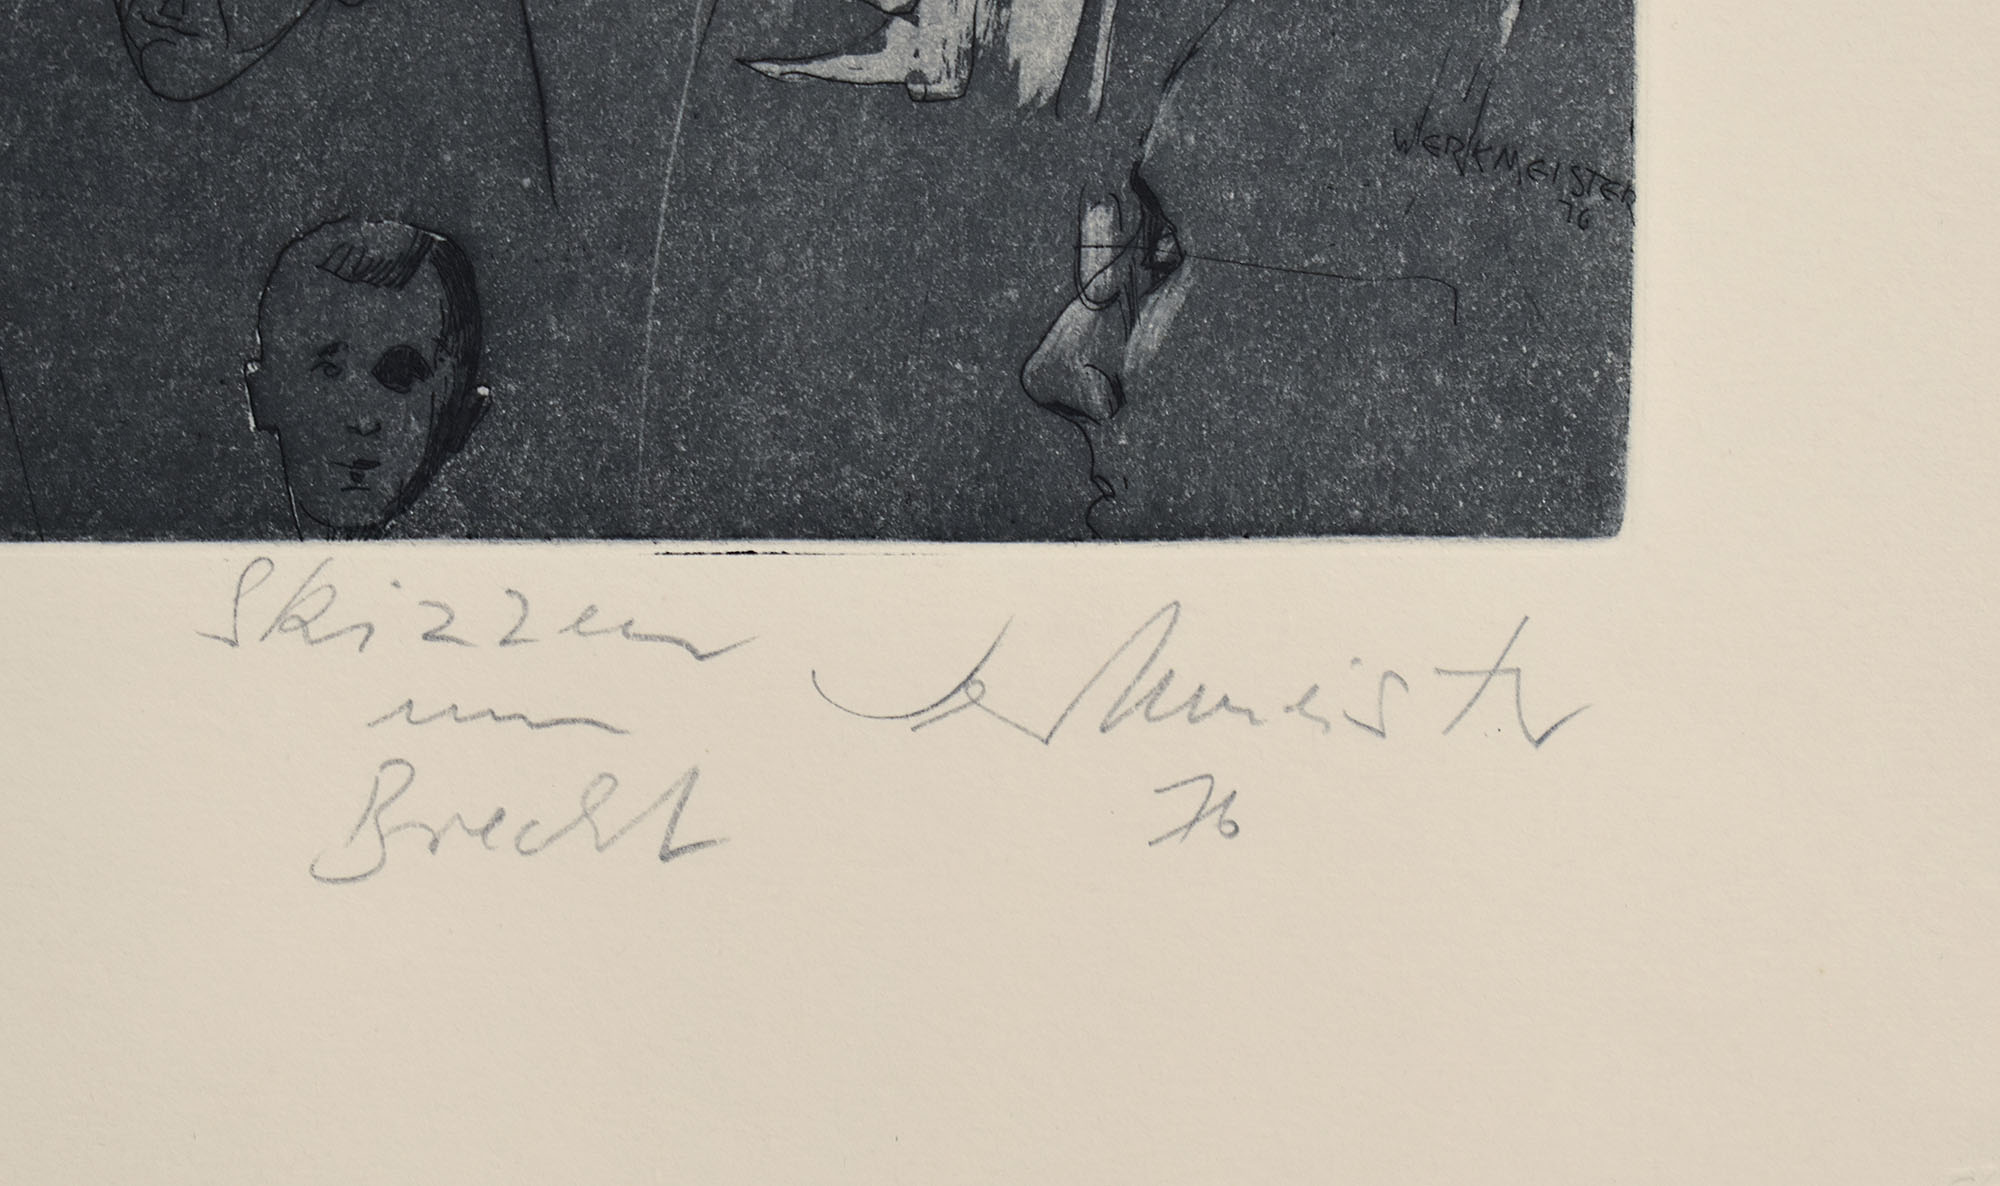 WERKMEISTER
76
Skizzen
um
Brecht
Werkmeister
76